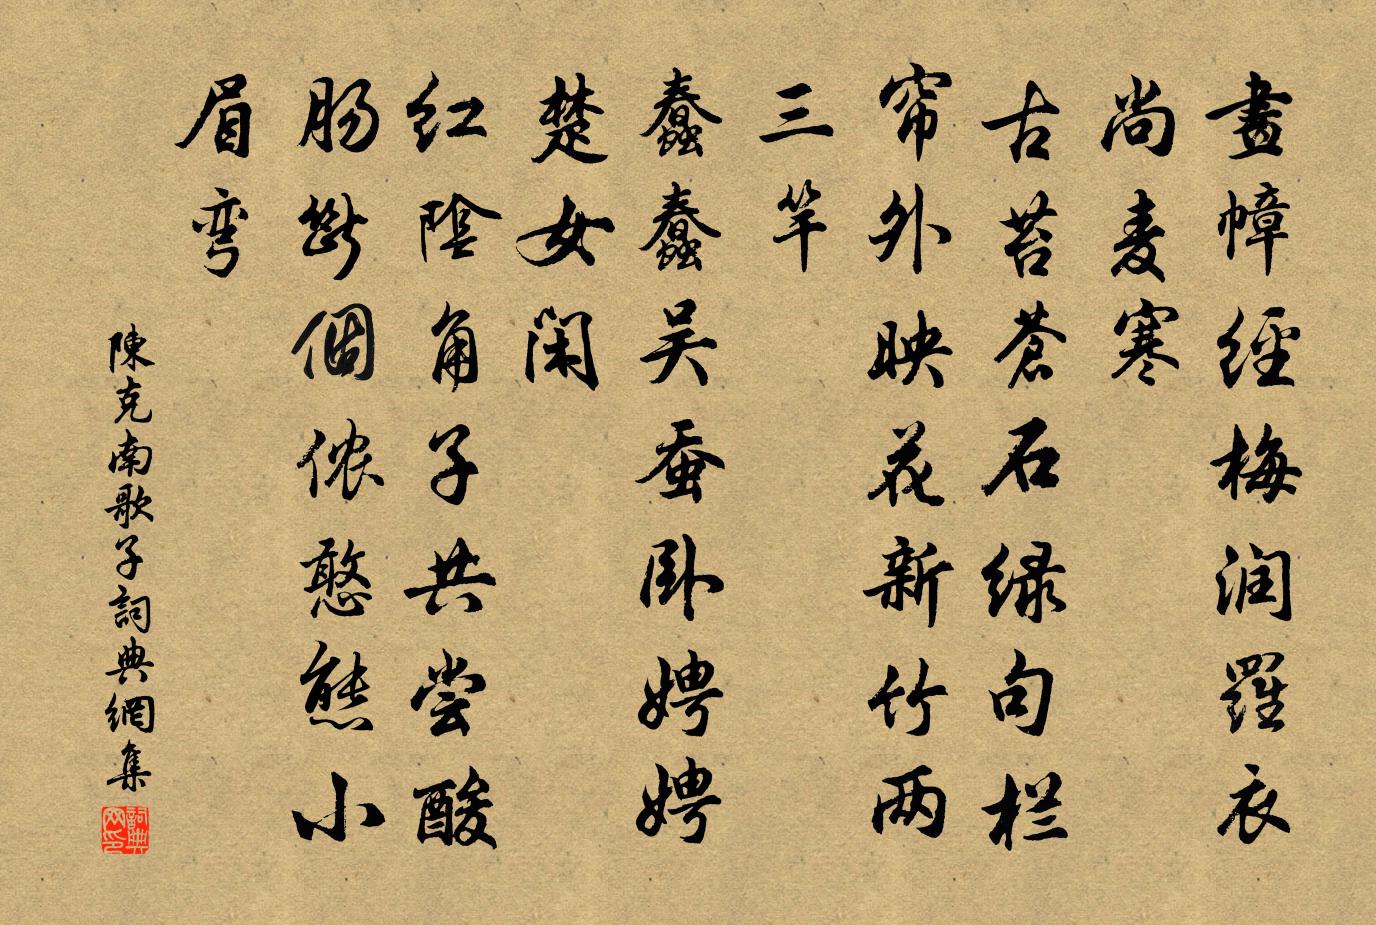 畫幛經梅润羅衣
尚麦寒
古苔蒼石绿句栏
帘外映花新竹两
三竿
蠢蠢吴蚕卧娉娉
楚女闲
红陰角子共尝酸
肠斷個侬憨態小
眉弯
陳克南歌子詞典網集
詞典网印